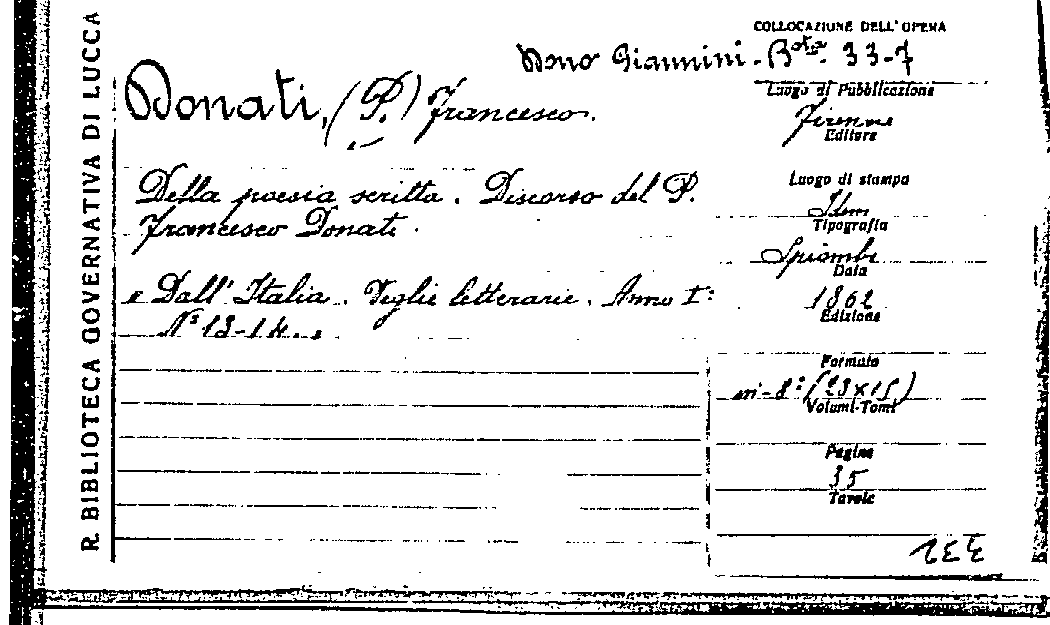 R. BIBLIOTECA GOVERNATIVA DI LUCCA
COLLOCAZIONE DELL'OPERA
Dono Giannini - Bta. 33-7
Donati, (P.) Francesco.
Luogo di Pubblicazione
Firenze
Editore
Della poesia scritta. Discorso del P.
Francesco Donati.
Luogo di stampa
Idem
Tipografia
Spiombi
Data
« Dall'Italia. Veglie letterarie. Anno I:
Ni 13-14. »
1862
Edizione
Formato
in-8: (23x15)
Volumi-Tomi
Pagine
35
Tavole